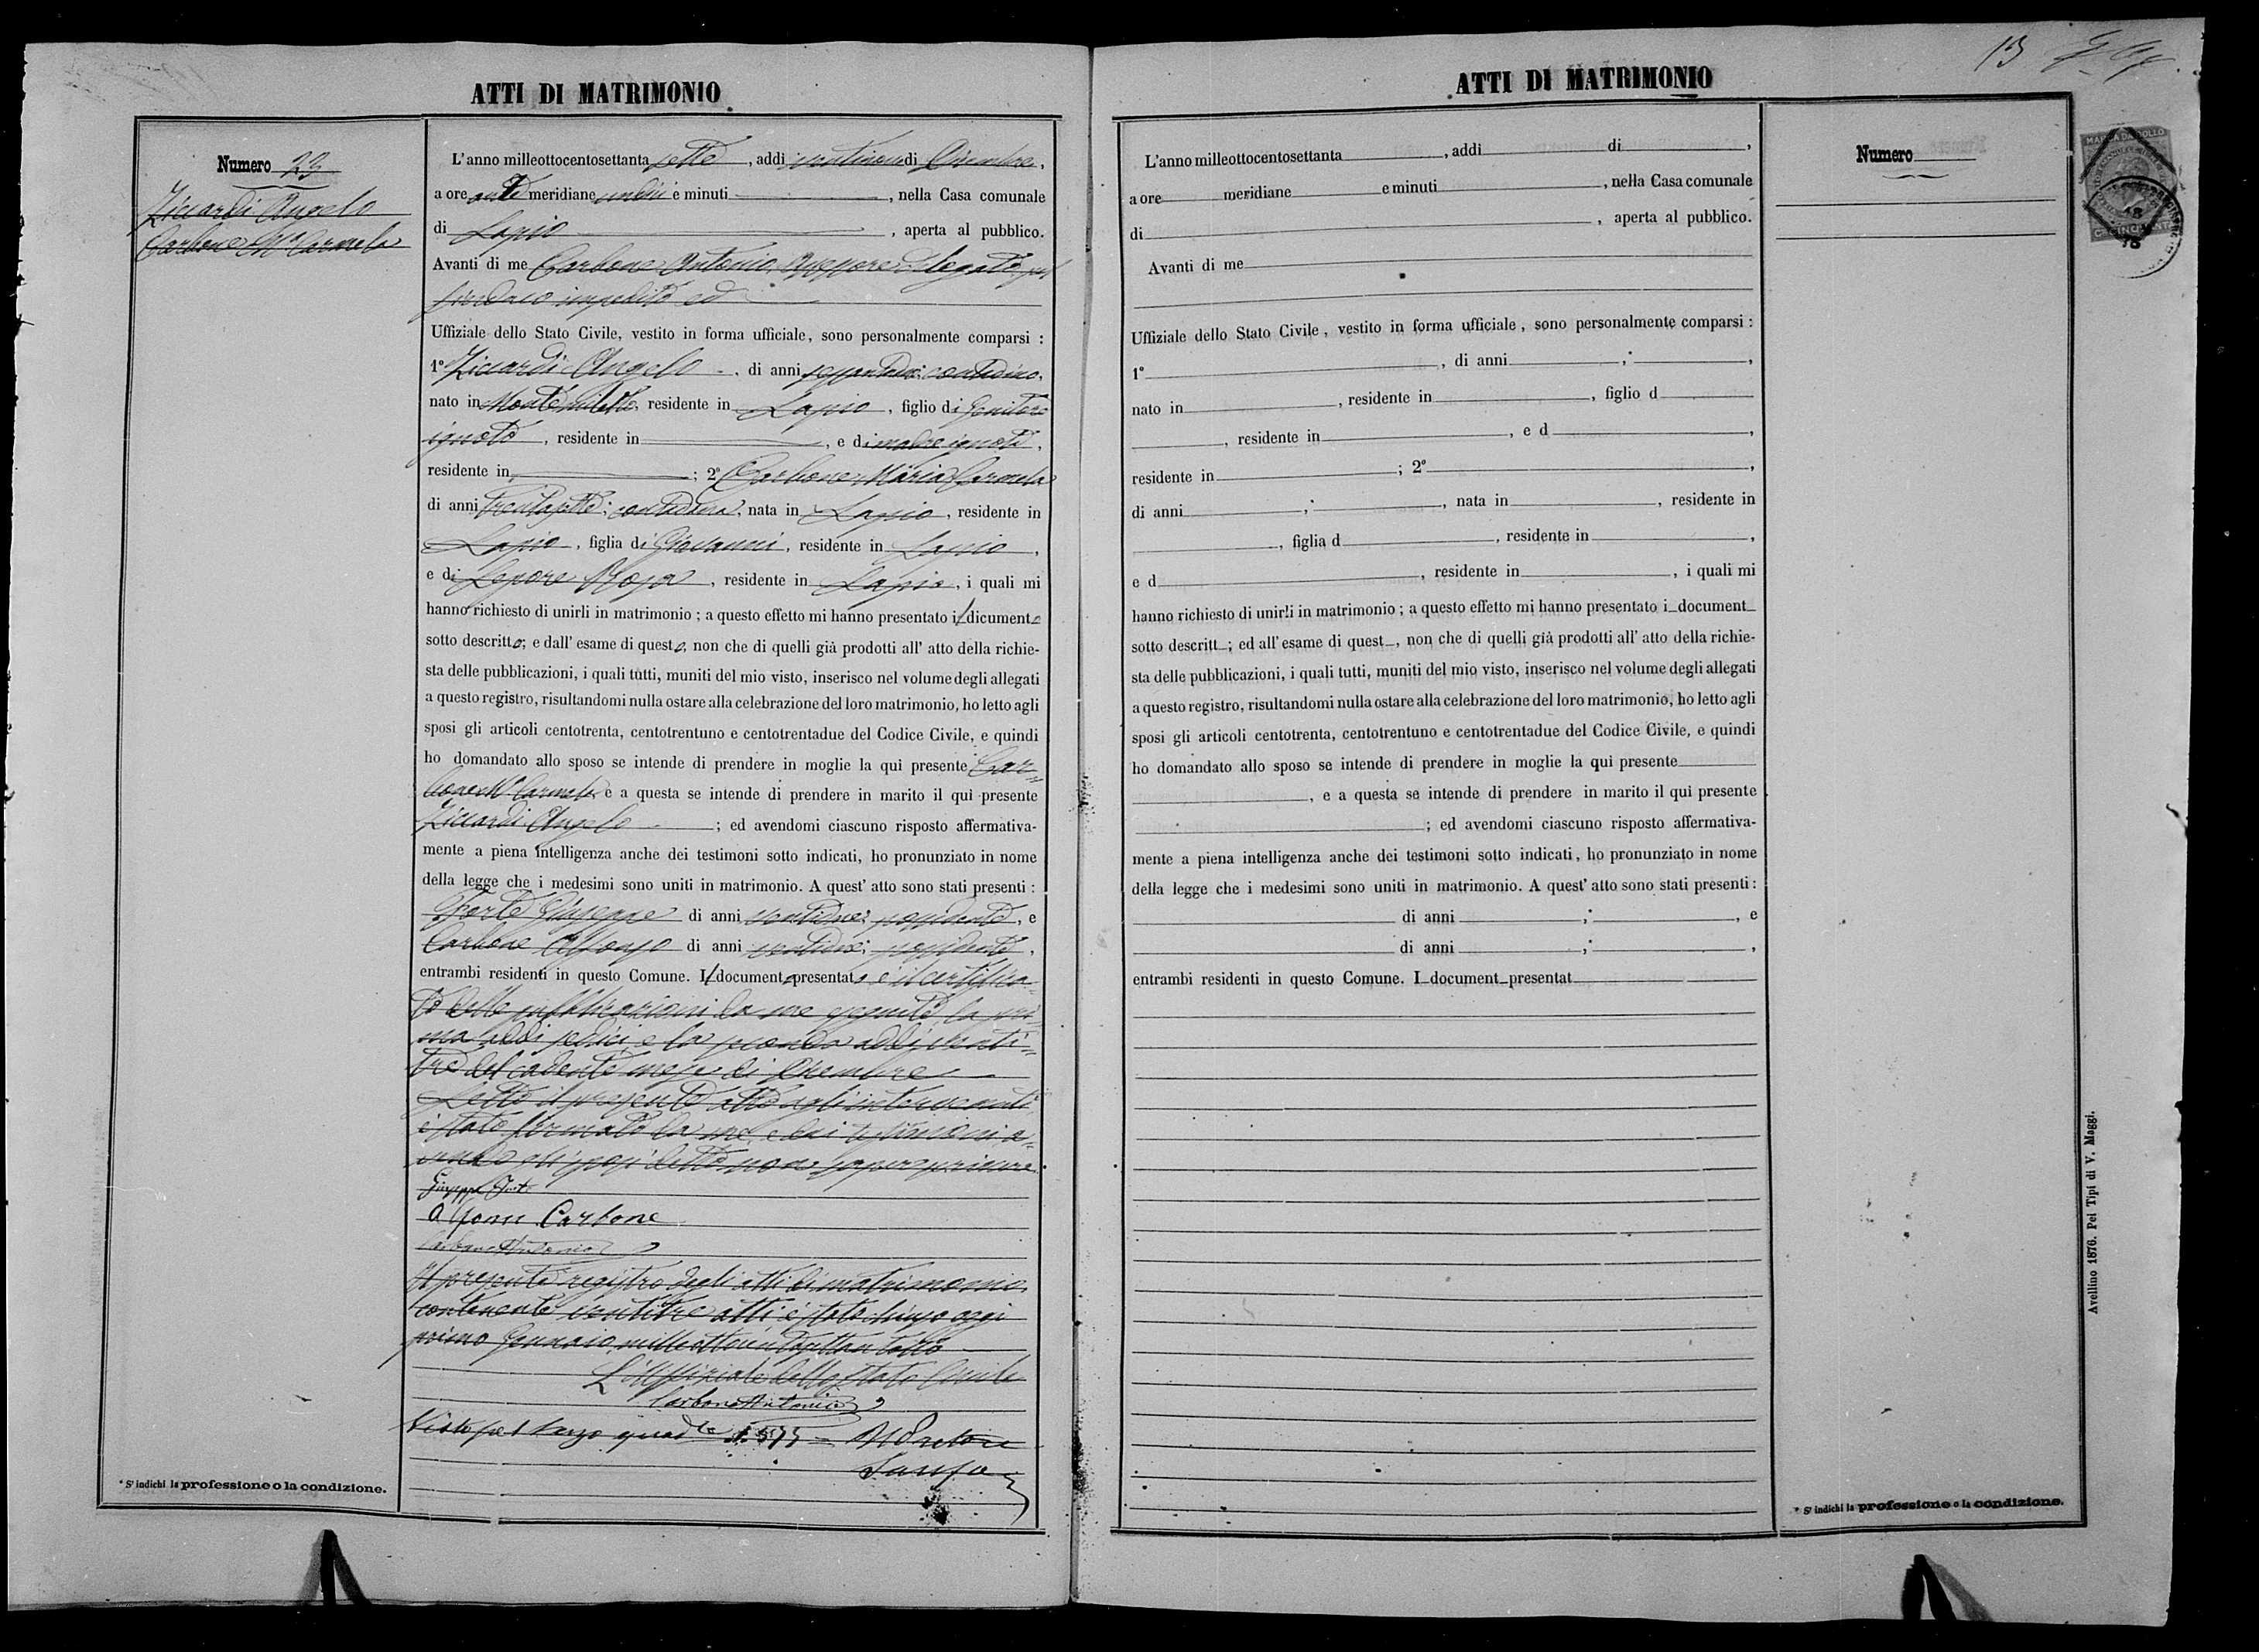 ATTI DI MATRIMONIO
Numero 23
Ziccardi Angelo
Carbone Mª Carmela
L'anno milleottocentosettanta sette, addi ventinove di Dicembre,
a ore anti meridiane undici e minuti, nella Casa comunale
di Lapio, aperta al pubblico.
Avanti di me Carbone Antonio, Assessore delegato pel
sindaco impedito ed
Uffiziale dello Stato Civile, vestito in forma ufficiale, sono personalmente comparsi :
1º Ziccardi Angelo, di anni contadino,
nato in Montemiletto, residente in Lapio, figlio di Genitore
ignoto, residente in, e di madre ignota,
residente in ; 2º Carbone Maria Carmela
di anni trentasette; contadina, nata in Lapio, residente in
Lapio, figlia di Giovanni, residente in Lapio,
e di Lepore Rosa, residente in Lapio, i quali mi
hanno richiesto di unirli in matrimonio ; a questo effetto mi hanno presentato il dicumento
sotto descritto; e dall' esame di questo, non che di quelli già prodotti all' atto della richie-
sta delle pubblicazioni, i quali tutti, muniti del mio visto, inserisco nel volume degli allegati
a questo registro, risultandomi nulla ostare alla celebrazione del loro matrimonio, ho letto agli
sposi gli articoli centotrenta, centotrentuno e centotrentadue del Codice Civile, e quindi
ho domandato allo sposo se intende di prendere in moglie la qui presente Car=
bone Mª Carmela, e a questa se intende di prendere in marito il qui presente
Ziccardi Angelo ; ed avendomi ciascuno risposto affermativa-
mente a piena intelligenza anche dei testimoni sotto indicati, ho pronunziato in nome
della legge che i medesimi sono uniti in matrimonio. A quest' atto sono stati presenti :
Forte Giuseppe di anni ventidue; possidente, e
Carbone Alfonso di anni ventidue; possidente,
entrambi residenti in questo Comune. Il documento presentato è il certifica=
to delle pubblicazioni da me eseguite, la pri=
ma addi sedici, e la seconda addi venti=
tre del cadente mese di Dicembre
Letto il presente atto agli intervenuti
è stato firmato da me, e dai testimoni a=
vendo gli sposi detto non sapere scrivere.
Giuseppe Forte
Alfonso Carbone
Carbone Antonio
Il presente registro degli atti di matrimonio
contenente ventitre atti è stato chiuso oggi
primo Gennaio milleottocentosettantotto
L'Uffiziale dello Stato Civile
Carbone Antonio
Visto pel terzo quad.re Il Pretore
* S' indichi la professione o la condizione.
13
ATTI DI MATRIMONIO
Numero
MARCA DA BOLLO
L'anno milleottocentosettanta, addi di,
a ore meridiane e minuti, nella Casa comunale
di, aperta al pubblico.
Avanti di me
Uffiziale dello Stato Civile, vestito in forma ufficiale, sono personalmente comparsi :
1º, di anni ;,
nato in, residente in, figlio d
, residente in, e d,
residente in ; 2º,
di anni ;, nata in, residente in
, figlia d, residente in,
e d, residente in, i quali mi
hanno richiesto di unirli in matrimonio ; a questo effetto mi hanno presentato i_document_
sotto descritt_; ed all' esame di quest_, non che di quelli già prodotti all' atto della richie-
sta delle pubblicazioni, i quali tutti, muniti del mio visto, inserisco nel volume degli allegati
a questo registro, risultandomi nulla ostare alla celebrazione del loro matrimonio, ho letto agli
sposi gli articoli centotrenta, centotrentuno e centotrentadue del Codice Civile, e quindi
ho domandato allo sposo se intende di prendere in moglie la qui presente
, e a questa se intende di prendere in marito il qui presente
; ed avendomi ciascuno risposto affermativa-
mente a piena intelligenza anche dei testimoni sotto indicati, ho pronunziato in nome
della legge che i medesimi sono uniti in matrimonio. A quest' atto sono stati presenti :
di anni ;, e
di anni ;,
entrambi residenti in questo Comune. I_document_presentat
* S' indichi la professione o la condizione.
Avellino 1876. Pei Tipi di V. Maggi.